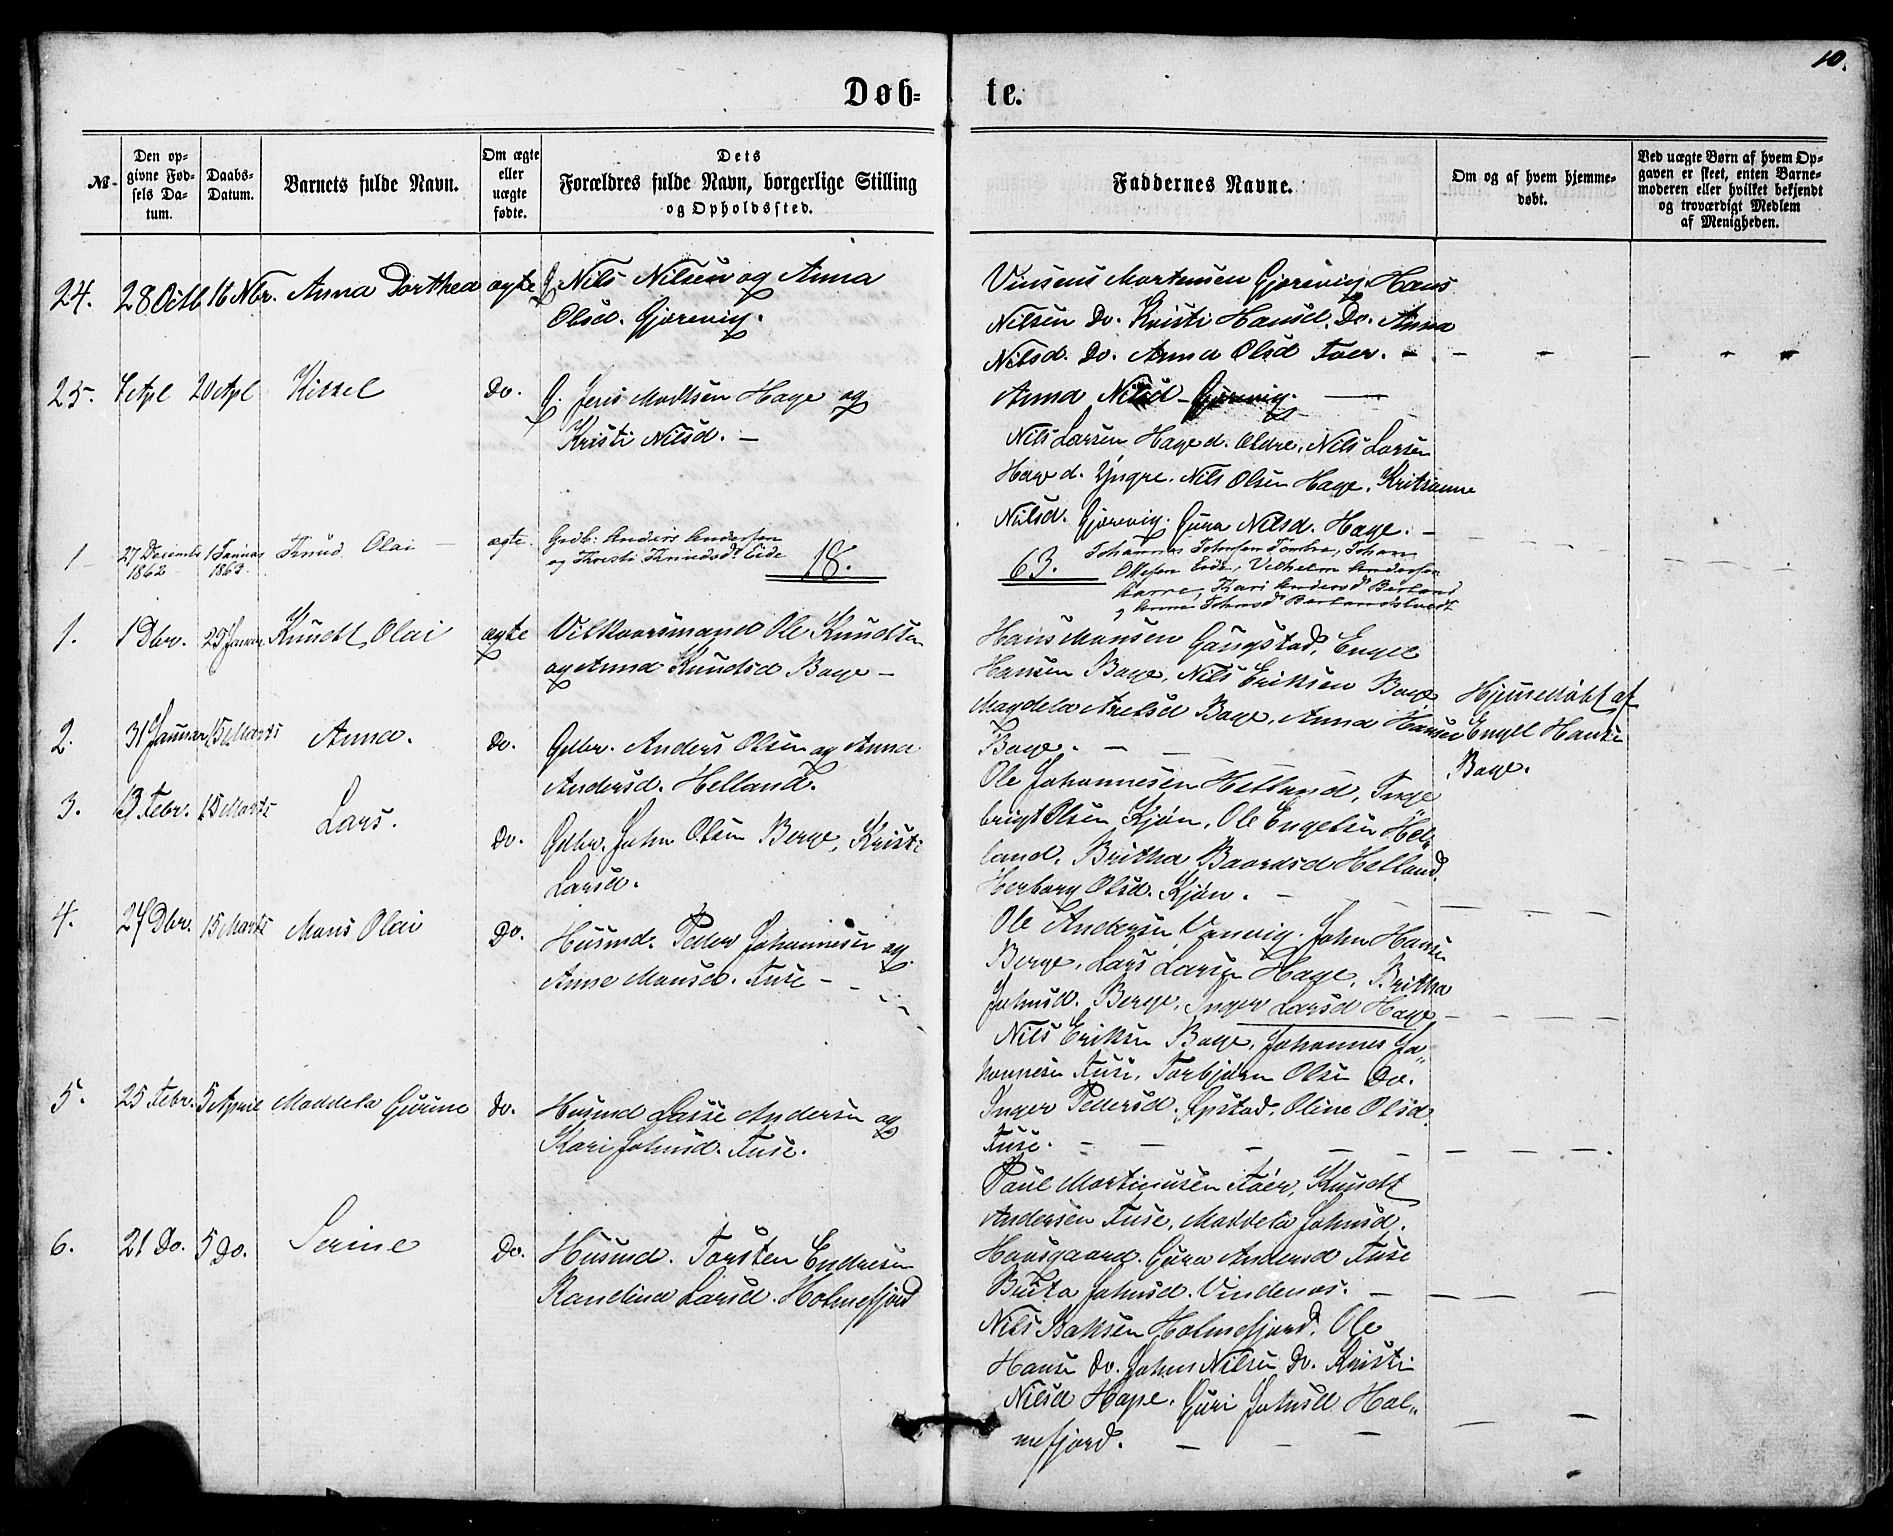 10.
Døb-te.
№
Den opgivne Fødsels Datum.
Daabs-Datum.
Barnets fulde Navn.
Om ægte eller uægte fødte.
Dets Forældres fulde Navn, borgerlige Stilling og Opholdssted.
Faddernes Navne.
Om og af hvem hjemmedøbt.
Ved uægte Børn af hvem Opgaven er skeet, enten Barnemoderen eller hvilket bekjendt og troværdigt Medlem af Menigheden.
24. 28 Octb 16 Nbr. Anna Dorthea ægte G Nils Nilsen og Anna
Olsd. Gjærevig.
Vinsens Mortensen Gjærevig, Hans
Nilsen Do. Kristi Hansd. Do. Anna
Nilsd. Do. Anna Olsd Tøer. -
Anna Nilsd - Gjærevig.
25. 7 Apl 20 Apl Kissel Do. G. Jens Madtsen Hage og
Kristi Nilsd. -
Nils Larsen Hage d. Eldre, Nils Larsen
Hage d. Yngre. Nils Olsen Hage, Kritianne
Nilsd. Gjærevig. Gura Nilsd. Hage. -
1 27 December 1862 1 Januar 1863 Knud Olai - ægte. Grdb: Anders Andersen
og Kirsti Knudsdr Eide
18.
63.
Johannes Johnsen Tombre, Johan
Ottesen Eide, Vilhelm Andersen
Aarre, Kari Andersd Berland
og Anne Johnsd Berlandstvedt
1. 1 Dbr. 25 Januar Knudt Olai ægte Vilkaarsmand Ole Knudtsen
og Anna Knudtsd Bage -
Hans Monsen Gaugstad, Engel
Hansen Bage, Nils Eriksen Bage
Magdela Axelsd Bage, Anna Hansd
Bage. -
Hjemmedøbt af
Engel Hansen
Bage.
2. 31 Januar 15 Marts Anna. Do. Gdbr. Anders Olsen og Anna
Andersd. Helland.
Ole Johannesen Helland, Inge
brigt Olsen Kjøn, Ole Engelsen Hel
land, Britha Baardsd Helland.
Herborg Olsd. Kjøn. -
3. 13 Febr. 15 Marts Lars. Do. Gdbr. John Olsen Berge, Kristi
Larsd.
Ole Andersen Vinnvig. John Hansen
Berge, Lars Larsen Hage, Britha
Johnsd. Berge, Inger Larsd Hage
4. 27 Dbr. 15 Marts Mons Olai Do. Husmd. Peder Johannesen og
Anne Monsd. Fuse -
Nils Eriksen Bage, Johannes Jo„
hannesen Fuse, Torbjørn Olsen Do.
Inger Pedersd. Opstad, Oline Olsd.
Fuse. -
5. 25 Febr. 5 April Maddela Gurine Do. Husmd Lasse Andersen og
Kari Johnsd. Fuse.
Paul Martinusen Tøer, Knudt
Andersen Fuse, Maddela Johnsd.
Haavsgaard. Gura Andersd Fuse
Brita Johnsd. Vindenes. -
6. 21 Do. 5 Do. Serine Do. Husmd. Torsten Endresen
Randina Larsd. Holmefjord
Nils Baksen Holmefjord. Ole
Hansen Do. Johan Nilsen Do. Kristi
Nilsd Hage. Guri Johnsd Hol„
mefjord. -